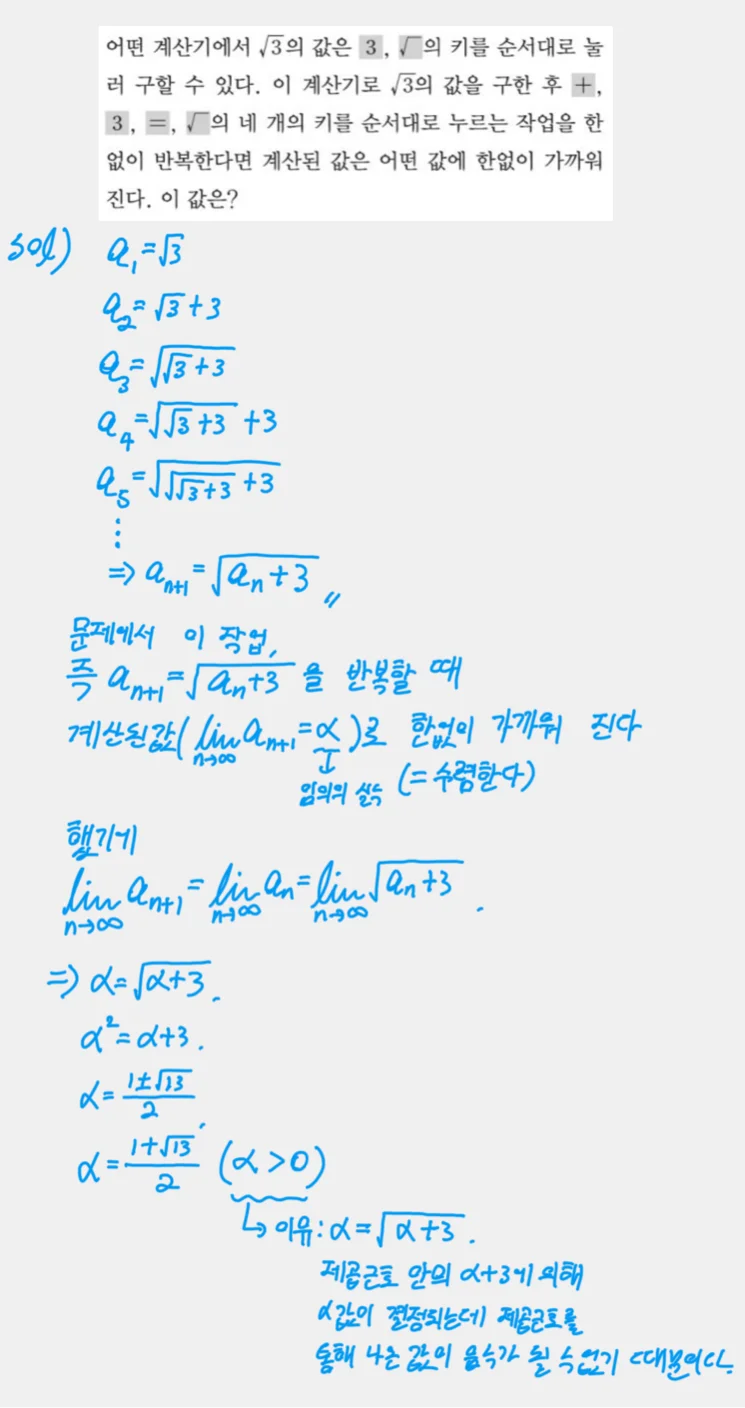 어떤 계산기에서 √3의 값은 3, √의 키를 순서대로 눌
러 구할 수 있다. 이 계산기로 √3의 값을 구한 후 +,
3, =, √의 네 개의 키를 순서대로 누르는 작업을 한
없이 반복한다면 계산된 값은 어떤 값에 한없이 가까워
진다. 이 값은?
sol) a₁=√3
a₂=√3+3
a₃=√(√3+3)
a₄=√(√3+3) +3
a₅=√(√(√3+3) +3)
⋮
⇒ aₙ₊₁=√(aₙ+3) 〃
문제에서 이 작업,
즉 aₙ₊₁=√(aₙ+3) 을 반복할 때
계산된값(lim n→∞ aₙ₊₁=α)로 한없이 가까워 진다
임의의 실수 (=수렴한다)
했기에
lim n→∞ aₙ₊₁=lim n→∞ aₙ=lim n→∞ √(aₙ+3) .
⇒ α=√(α+3).
α²=α+3.
α=(1±√13)/2.
α=(1+√13)/2 (α>0)
↳ 이유: α=√(α+3).
제곱근호 안의 α+3에 의해
α값이 결정되는데 제곱근호를
통해 나온 값이 음수가 될 수 없기 때문이다.